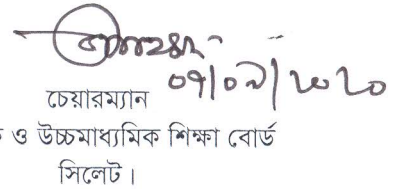 ০৭/০৯/২০২০
চেয়ারম্যান
ও উচ্চমাধ্যমিক শিক্ষা বোর্ড
সিলেট।